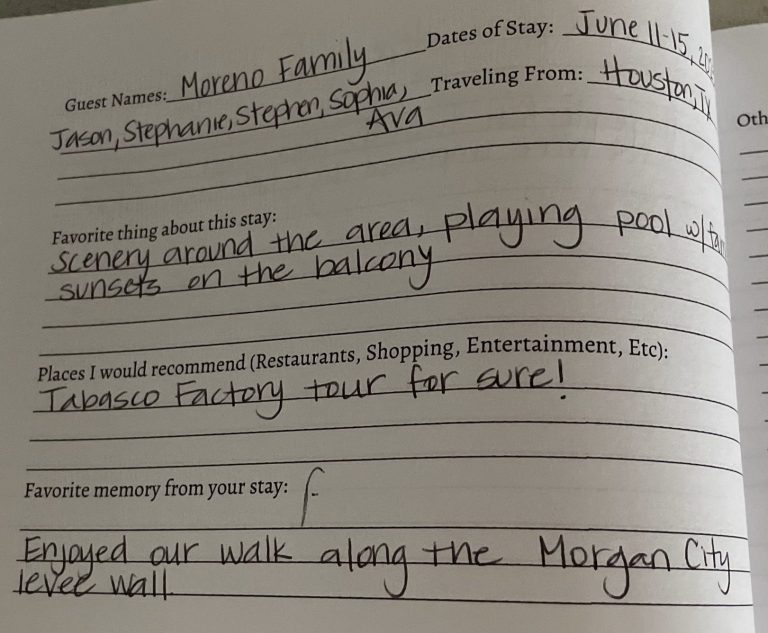 Guest Names: Moreno Family Dates of Stay: June 11-15,
Jason, Stephanie, Stephen, Sophia, Traveling From: Houston, TX
Ava
Oth
Favorite thing about this stay:
scenery around the area, playing pool w/
sunsets on the balcony
Places I would recommend (Restaurants, Shopping, Entertainment, Etc):
Tabasco Factory tour for sure!
Favorite memory from your stay:
Enjoyed our walk along the Morgan City
levee wall